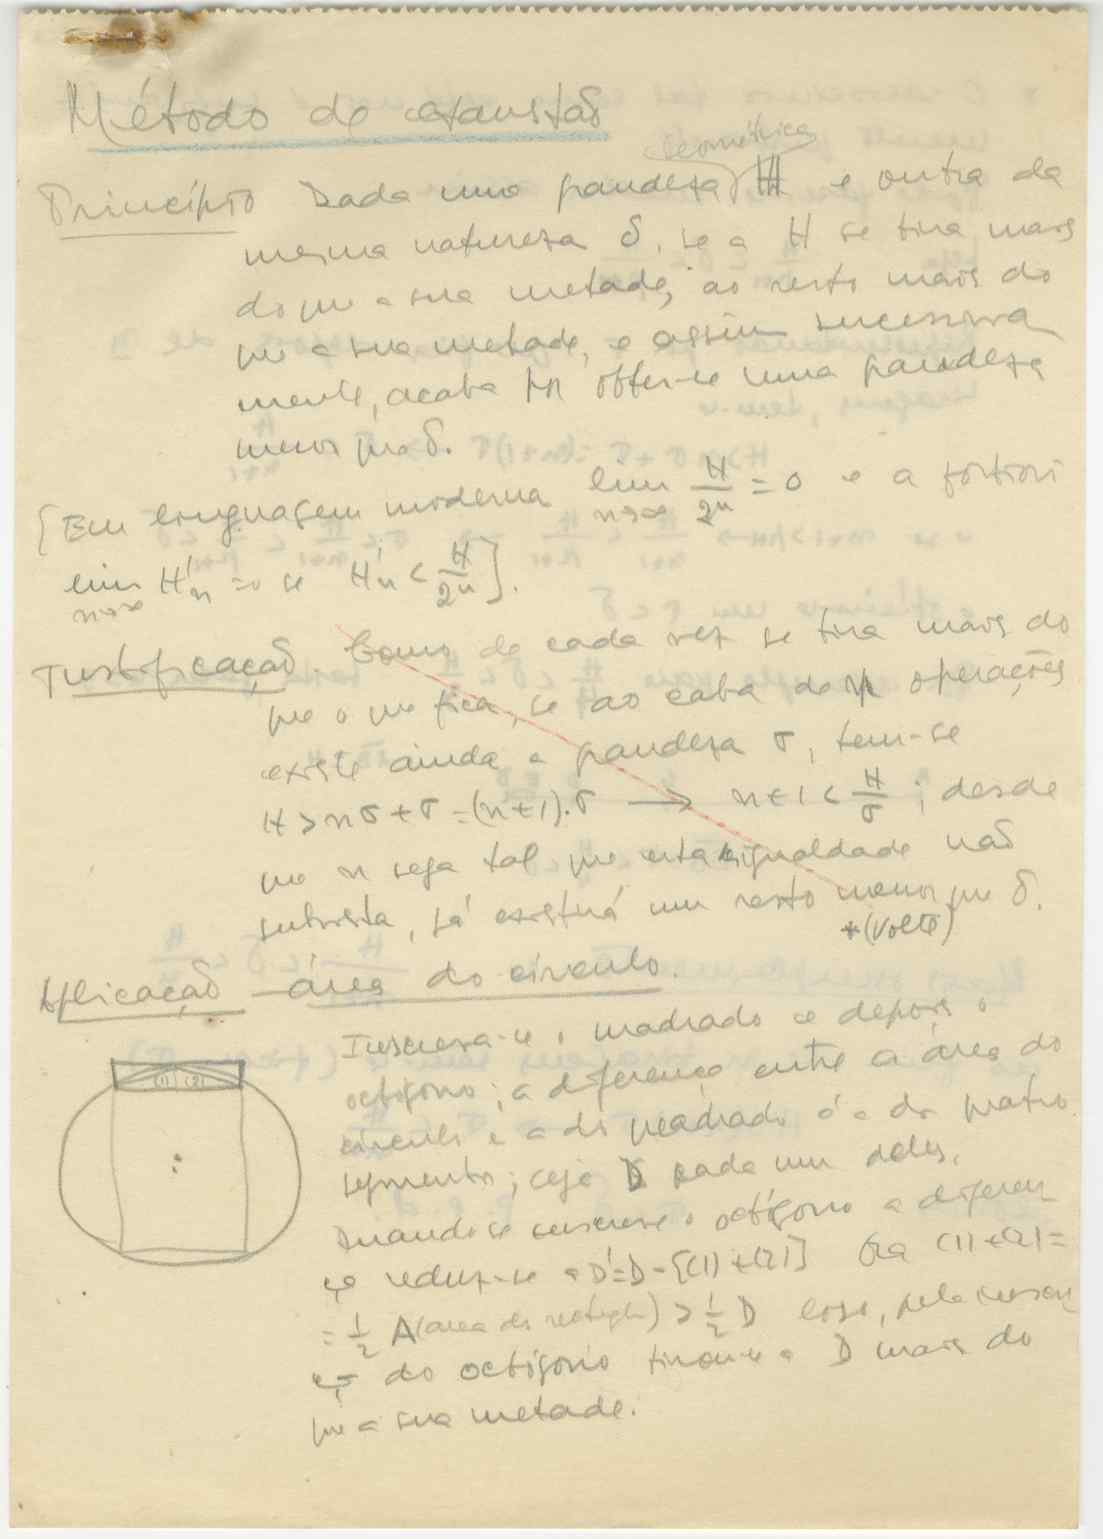 Método de exaustão
geométrica
Princípio Dada uma grandeza H e outra da
mesma natureza δ, se a H se tira mais
do que a sua metade, ao resto mais do
que a sua metade, e assim sucessiva
mente, acaba por obter-se uma grandeza
menor que δ.
[Em linguagem moderna lim n→∞ H/2ⁿ = 0 e a fortiori
lim n→∞ H'n = 0 se H'n < H/2ⁿ].
Justificação. Como de cada vez se tira mais do
que o que fica, se ao cabo de n operações
existe ainda a grandeza σ, tem-se
H > nσ + σ = (n+1).σ → n+1 < H/σ ; desde
que n seja tal que esta desigualdade não
subsista, já existirá um resto menor que δ.
*(Volte)
Aplicação - área do círculo.
Inscreva-se o quadrado e depois o
octógono; a diferença entre a área do
círculo e a do quadrado é a de quatro
segmentos; seja D cada um deles.
Quando se inscreve o octógono a diferen
ça reduz-se a D'=D-[(1)+(2)] Ora (1)+(2)=
= 1/2 A (área do rectângulo) > 1/2 D logo, pela inscri
ção do octógono tirou-se a D mais do
que a sua metade.
(1) (2)